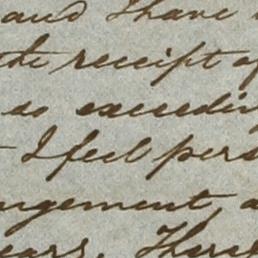 and I have
the receipt of
so exceedin
I feel pers
ngement, a
ears. There